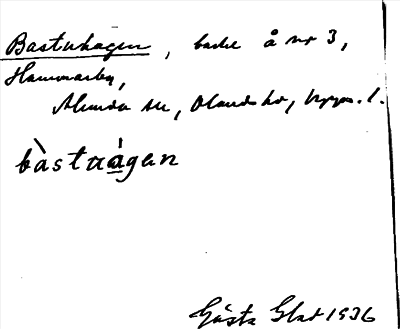 Bastuhagen, backe å nr 3,
Hammarby,
Alunda sn, Olands hd, Upps. l.
bàstuágen
Gösta 1936